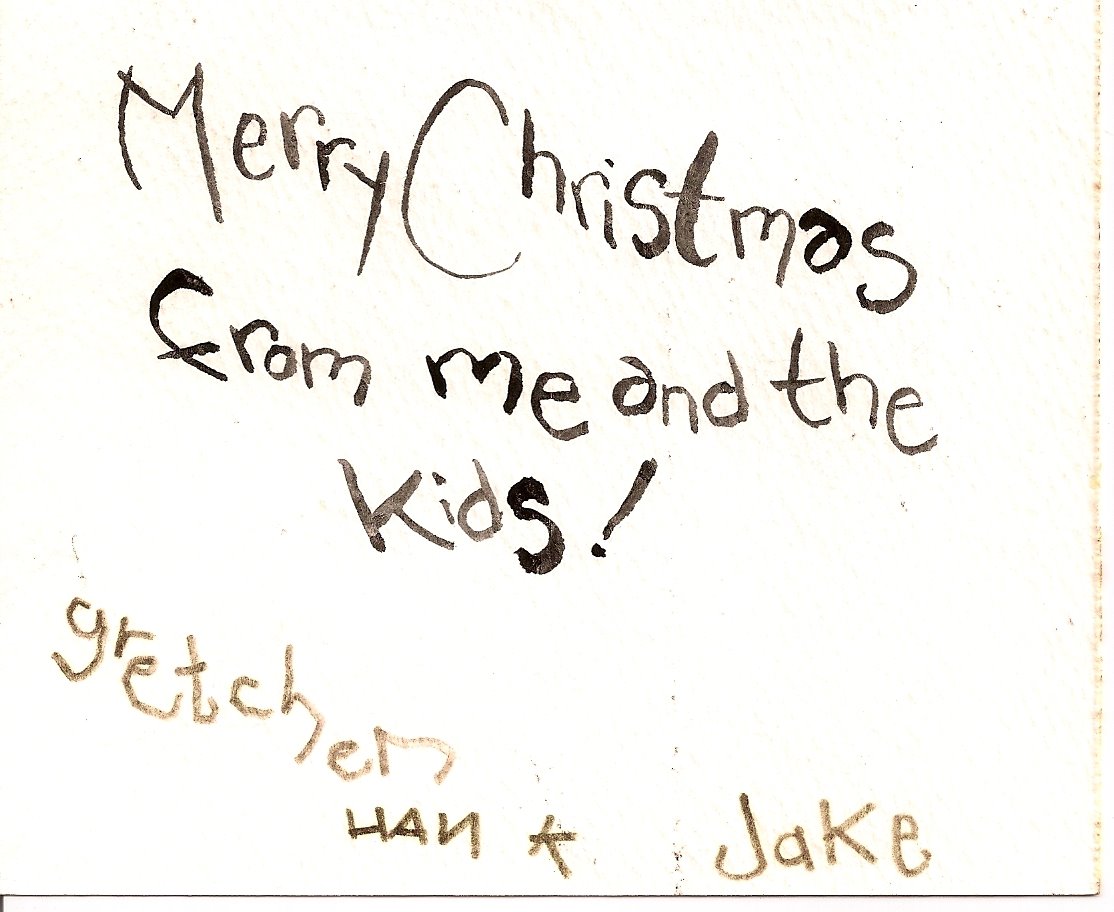 Merry Christmas
from me and the
kids!
gretchen
HAN & Jake